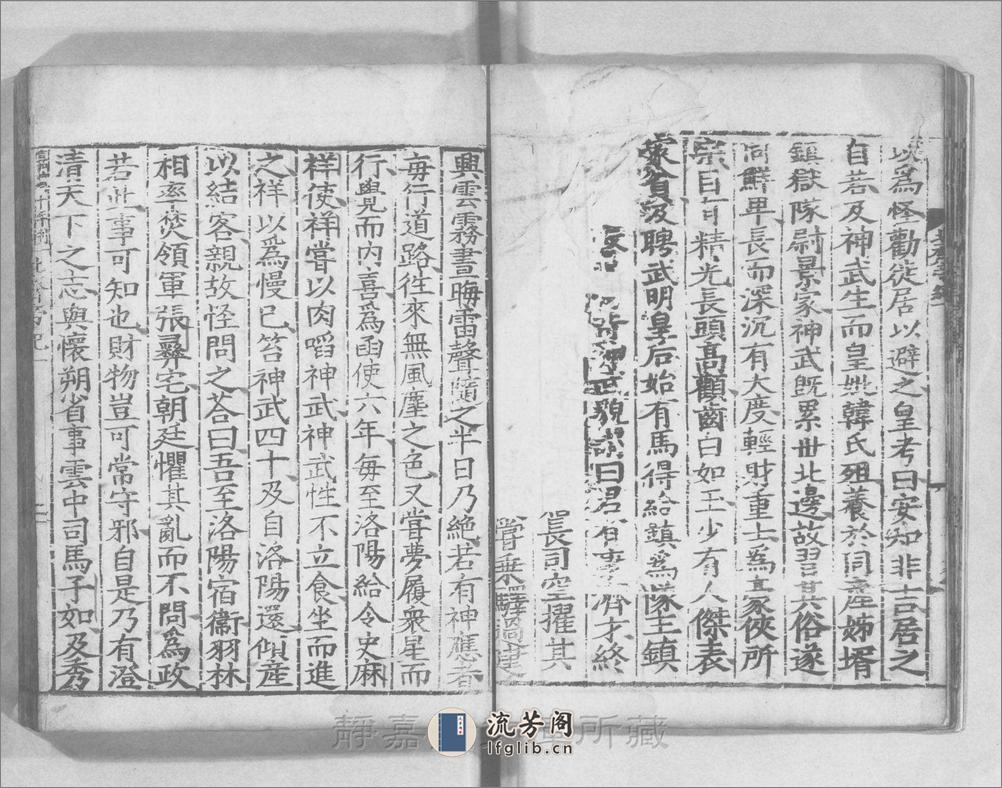 以爲怪勸徙居以避之皇考曰安知非吉居之
自若及神武生而皇妣韓氏殂養於同產姊壻
鎮獄隊尉景家神武旣累丗北邊故習其俗遂
同鮮卑長而深沉有大度輕財重士爲豪俠所
宗目有精光長頭高顴齒白如玉少有人傑表
家貧及聘武明皇后始有馬得給鎮爲隊主鎮
武貌謂曰君有濟才終
長司空擢其
嘗乗驛過建
興雲霧晝晦雷聲隨之半日乃絶若有神應者
每行道路往來無風塵之色又嘗夢履衆星而
行覺而內喜為函使六年每至洛陽給令史麻
祥使祥嘗以肉啗神武神武性不立食坐而進
之祥以爲慢己笞神武四十及自洛陽還傾產
以結客親故怪問之荅曰吾至洛陽宿衞羽林
相率焚領軍張彝宅朝廷懼其亂而不問爲政
若此事可知也財物豈可常守邪自是乃有澄
清天下之志與懷朔省事雲中司馬子如及秀
靜嘉所藏
流芳阁
lfglib.cn